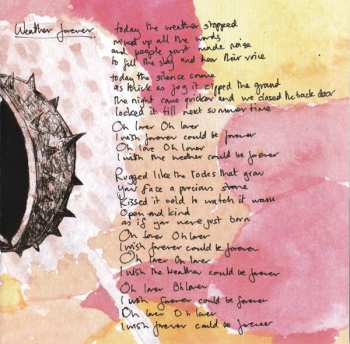 Weather forever
today the weather stopped
mixed up all the words
and people just made noise
to fill the sky and hear their voice
today the silence came
as thick as fog it zipped the ground
the night came quicker and we closed the back door
locked it till next summer time
Oh lover Oh lover
I wish forever could be forever
Oh lover Oh lover
I wish the weather could be forever
Rugged like the rocks that grow
Your face a precious stone
Kissed it cold to watch it warm
Open and kind
as if you were just born
Oh lover Oh lover
I wish forever could be forever
Oh lover Oh lover
I wish the weather could be forever
Oh lover Oh lover
I wish forever could be forever
Oh lover Oh lover
I wish forever could be forever